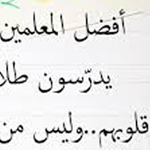 أفضل المعلمين
يدرّسون طلا
قلوبهم..وليس من